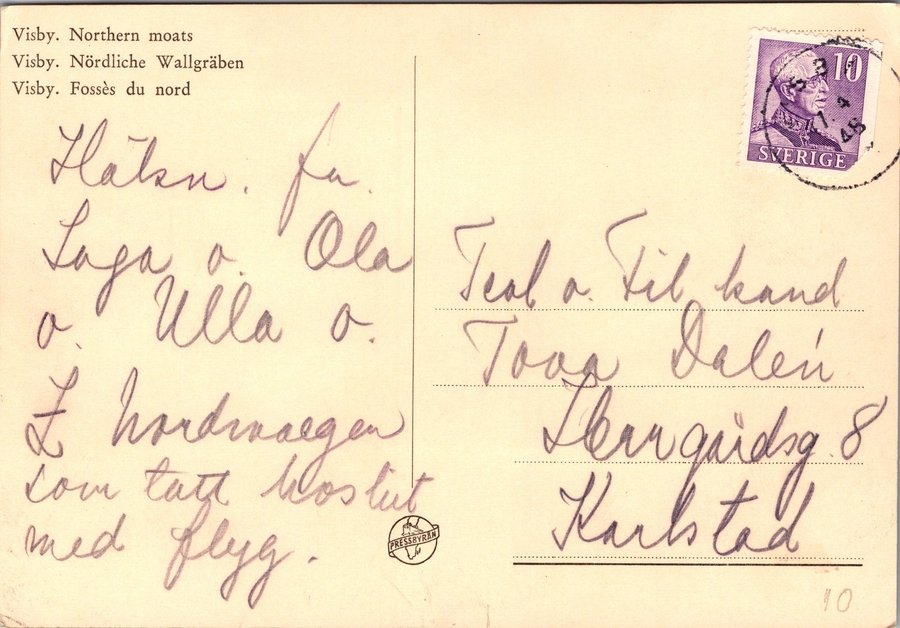 Visby. Northern moats
Visby. Nördliche Wallgräben
Visby. Fossès du nord
Hälsn. fr.
Saga o. Ola
o. Ulla o.
som tatt hos
med flyg.
PRESSBYRÅN
10
SVERIGE
Teol o. Fil kand
Tova Dalén
Herrgårdsg. 8
Karlstad
10